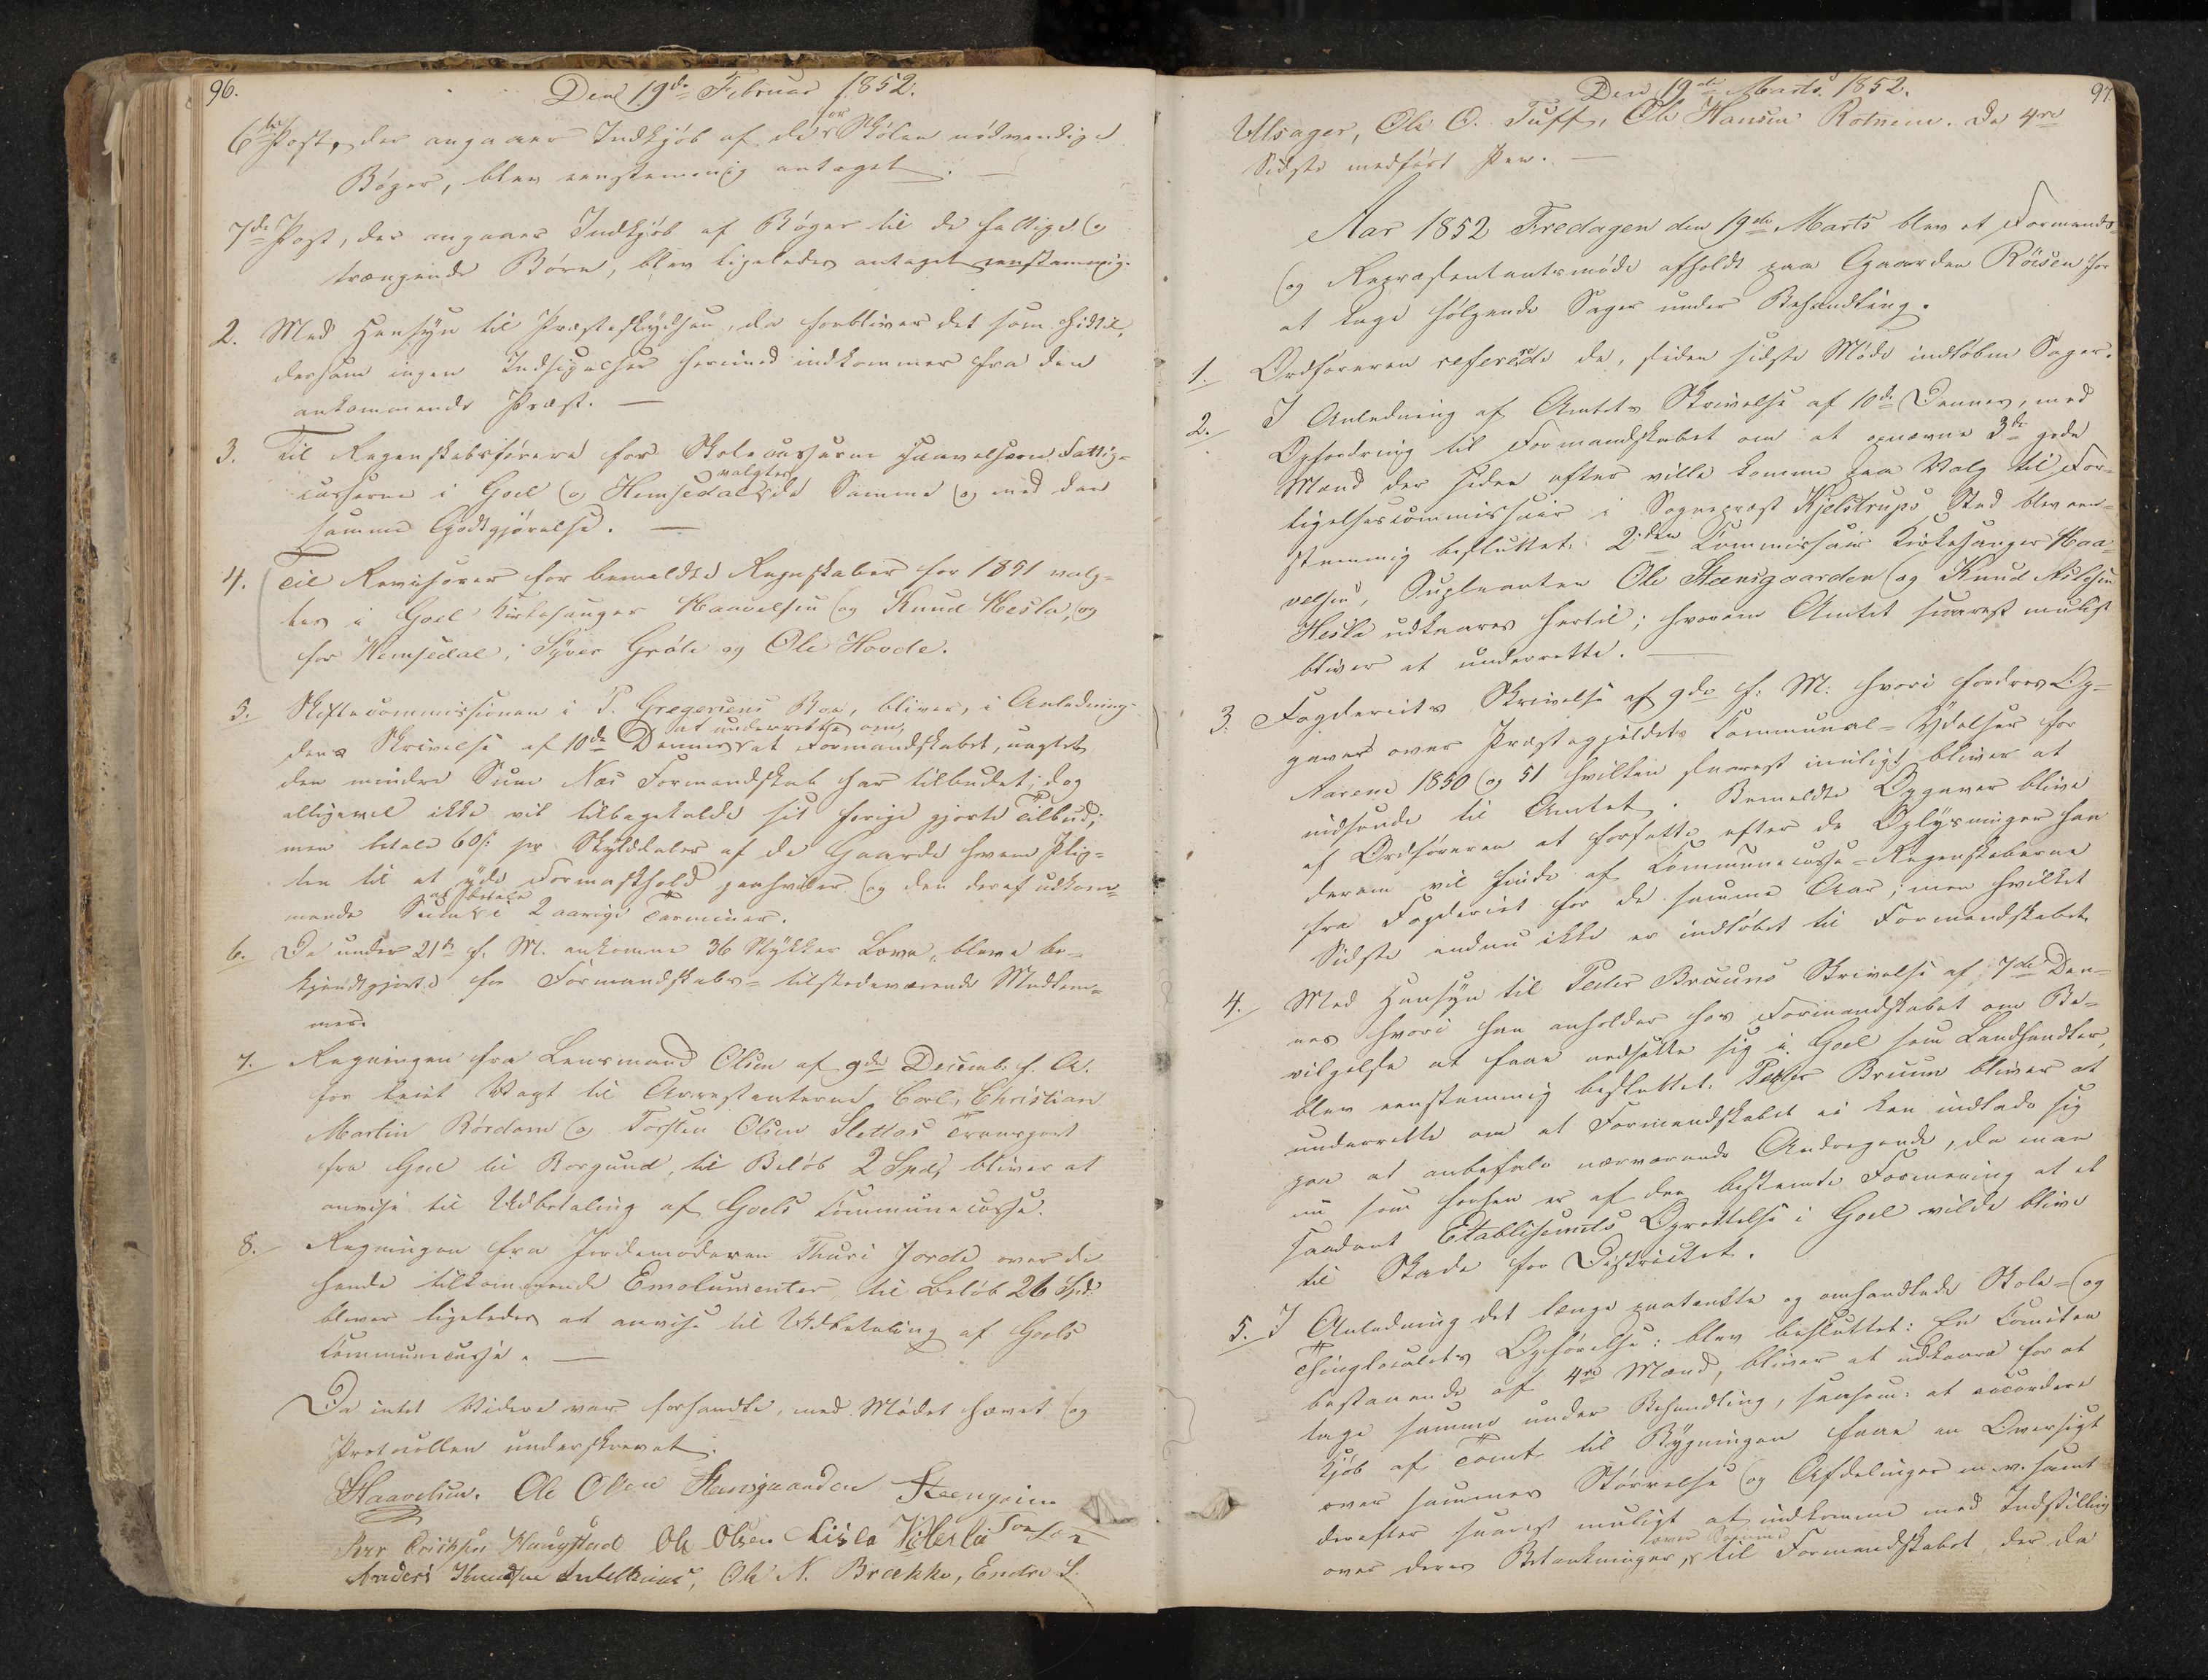 96.
Den 19de Februar 1852.
6te Post, der angaaer Indkjöb af de for Skolen nödvendige
Böger, blev eenstemmig antaget. —
7de Post, der angaaer Indkjöb af Böger til de fattige og
trængende Börn, blev ligeledes antaget eenstemmig.
2. Med Hensyn til Præsteskydsen, da forbliver det som hidtil,
dersom ingen Indsigelser herimod indkommer fra den
ankommende Præst. —
3. Til Regenskabsförere for Skolecasserne saavelsom Fattig-
casserne i Goel og Hemsedal valgtes de Samme og med den
samme Godtgjörelse. —
4. Til Revisorer for bemeldte Regnskaber for 1851 valg-
tes i Goel Kirkesanger Haavelsen og Knud Hesla, og
for Hemsedal, Syver Gröte og Ole Hovde.
5. Skiftecommissionen i P. Gregersens Boe, bliver, i Anledning
dens Skrivelse af 10de Dennes at underrettes om, at Formandskabet, uagtet
den mindre Sum Næs Formandskab har tilbudet, dog
alligevel ikke vil tilbagekalde sit forige gjorte Tilbud,
men betale 60 s pr Skylddaler af de Gaarde hvem Plig-
ten til at yde Formasthold paahviler og den deraf udkom-
mende Sum at betale i 2 aarige Terminer.
6. De under 21de f. M. ankomne 36 Stykker Love, bleve be-
kjendtgjorte for Formandskabs- tilstedeværende Medlem-
mer.
7. Regningen fra Lensmand Olsen af 9de Decemb. f. A.
for leiet Vagt til Arrestanterne Carl Christian
Martin Rördam og Torsten Olsen Slettos Transport
fra Goel til Borgund, til Belöb 2 Spd, bliver at
anvise til Udbetaling af Goels Communecasse.
8. Regningen fra Jordemoderen Thuri Jorde over de
hende tilkommende Emolumenter, til Belöb 26 Spd.
bliver ligeledes at anvise til Udbetaling af Goels
Communecasse. —
Da intet Videre var forhandle, med Mödet hævet og
Protocollen underskrevet.
Haavelsen. Ole Olsen Stensgaarden
Ole Olsen
Anders Knudsen Ole N. Brække, Endre S.
Den 19de Marts 1852.
97
Ulsager, Ole O. Tuff, Ole Hansen Rotneim. De 4re
Sidste medfört Pen. —
Aar 1852 Fredagen den 19de Marts blev et Formands-
og Repræsentantsmöde afholdt paa Gaarden Röisen for
at tage fölgende Sager under Behandling.
1. Ordföreren refererede de, siden sidste Möde indlöbne Sager.
2. I Anledning af Amtets Skrivelse af 10de Dennes, med
Opfordring til Formandskabet om at opnævne 3de gode
Mænd der siden efter ville komme paa Valg til For-
ligelsescommissair i Sognepræst Kjelstrups Sted blev een-
stemmig besluttet: 2den Commissair Kirkesanger Haa-
velsen, Supleanten Ole Stensgaarden og Knud Nilssen
Hesla udkaares hertil; hvorom Amtet snarest muligt
bliver at underrette. —
3. Fogderiets Skrivelse af 9de f: M: hvori fordres Op-
gaver over Præstegjeldets Communal-Ydelser for
Aarene 1850 og 51 hvilken snarest muligt bliver at
indsende til Amtet. Bemeldte Opgaver blive
af Ordföreren at forfatte efter de Oplysninger han
derom vil finde af Communecasse-Regenskaberne
fra Fogderiet for de samme Aar; men hvilket
Sidste endnu ikke er indlöbet til Formandskabet.
4. Med Hensyn til Peder Bruuns Skrivelse af 7de Den-
nes hvori han anholder hos Formandskabet om Be-
vilgelse at faae nedsætte sig i Goel som Landhandler,
blev eenstemmig besluttet: Peder Bruun bliver at
underrette om at Formandskabet ei kan indlade sig
paa at anbefale nærværende Andragende, da man
nu som forhen er af den bestemte Formening at et
saadant Etablisements Oprettelse i Goel vilde blive
til Skade for Districtet.
5. I Anledning det længe paatænkte og omhandlede Skole- og
Thinglocalets Opförelse: blev besluttet: En Comiteen
bestaaende af 4re Mænd, bliver at udkaare for at
tage samme under Behandling, saasom: at accordere
Kjöb af Tomt til Bygningen faae en Oversigt
over sammes Störrelse og Afdelinger m.v. samt
derefter snarest muligt at indkomme med Indstilling
over deres Betænkninger, over Samme til Formandskabet der da